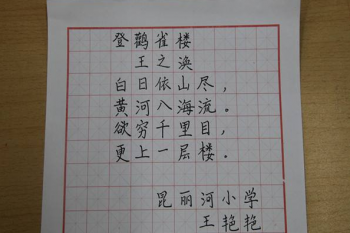 登鹳雀楼
王之涣
白日依山尽，
黄河入海流。
欲穷千里目，
更上一层楼。
昆丽河小学
王艳艳